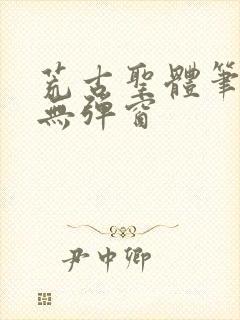 荒古聖體筆
無彈窗
尹中卿